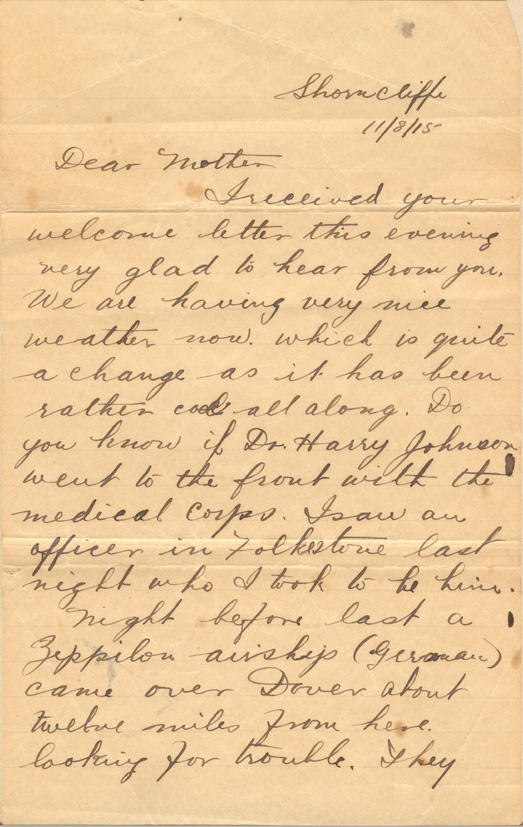 Shorncliffe
11/8/15
Dear Mother
I received your
welcome letter this evening
very glad to hear from you.
We are having very nice
weather now. which is quite
a change as it has been
rather all along. Do
you know if Dr. Harry Johnson
went to the front with the
medical corps. I saw an
officer in Folkstone last
night who I took to be him.
Night before last a
Zeppilon airship (German)
came over Dover about
twelve miles from here.
looking for trouble. They